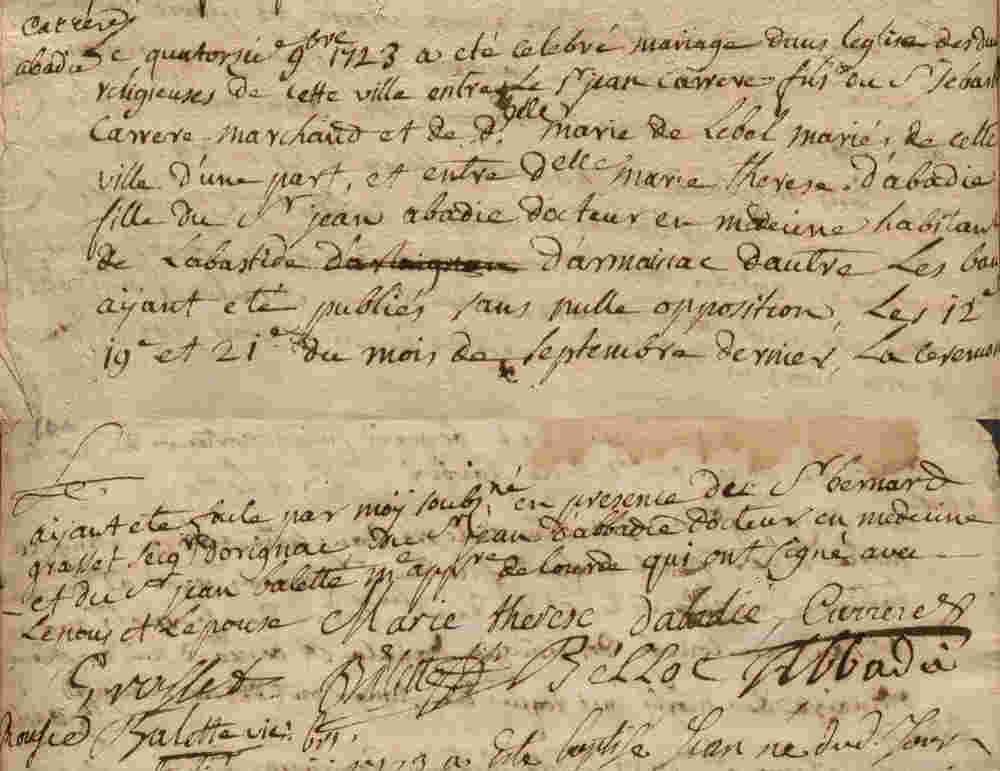 Carrere
abadie
Le quatorsie 9bre 1723 a eté celebré mariage dans leglise des dam
religieuses de cette ville entre Le Sr jean Carrere fils du Sr Sebast
Carrere marchand et de dlle marie de Lebol mariés de cette
ville d'une part, et entre delle marie therese d'abadie
fille du Sr jean abadie docteur en medecine habitant
de Labastide d'armaniac dautre Les ban
ayant eté publiés sans nulle opposition, Les 12e
19e et 21e du mois de septembre dernier, La ceremo
ayant eté faite par moy soubsné en presence de Sr bernard
grasset secqr dorignac, du Sr jean dabbadie docteur en medecine
et du Sr jean balette me appre de lourde qui ont signé avec
Lenous et Lepouse Marie therese dabadie, Carrere
Grasset Balette Belloc Abbadie
Balette vic.
1723 a este baptisé Jean né dud. jour